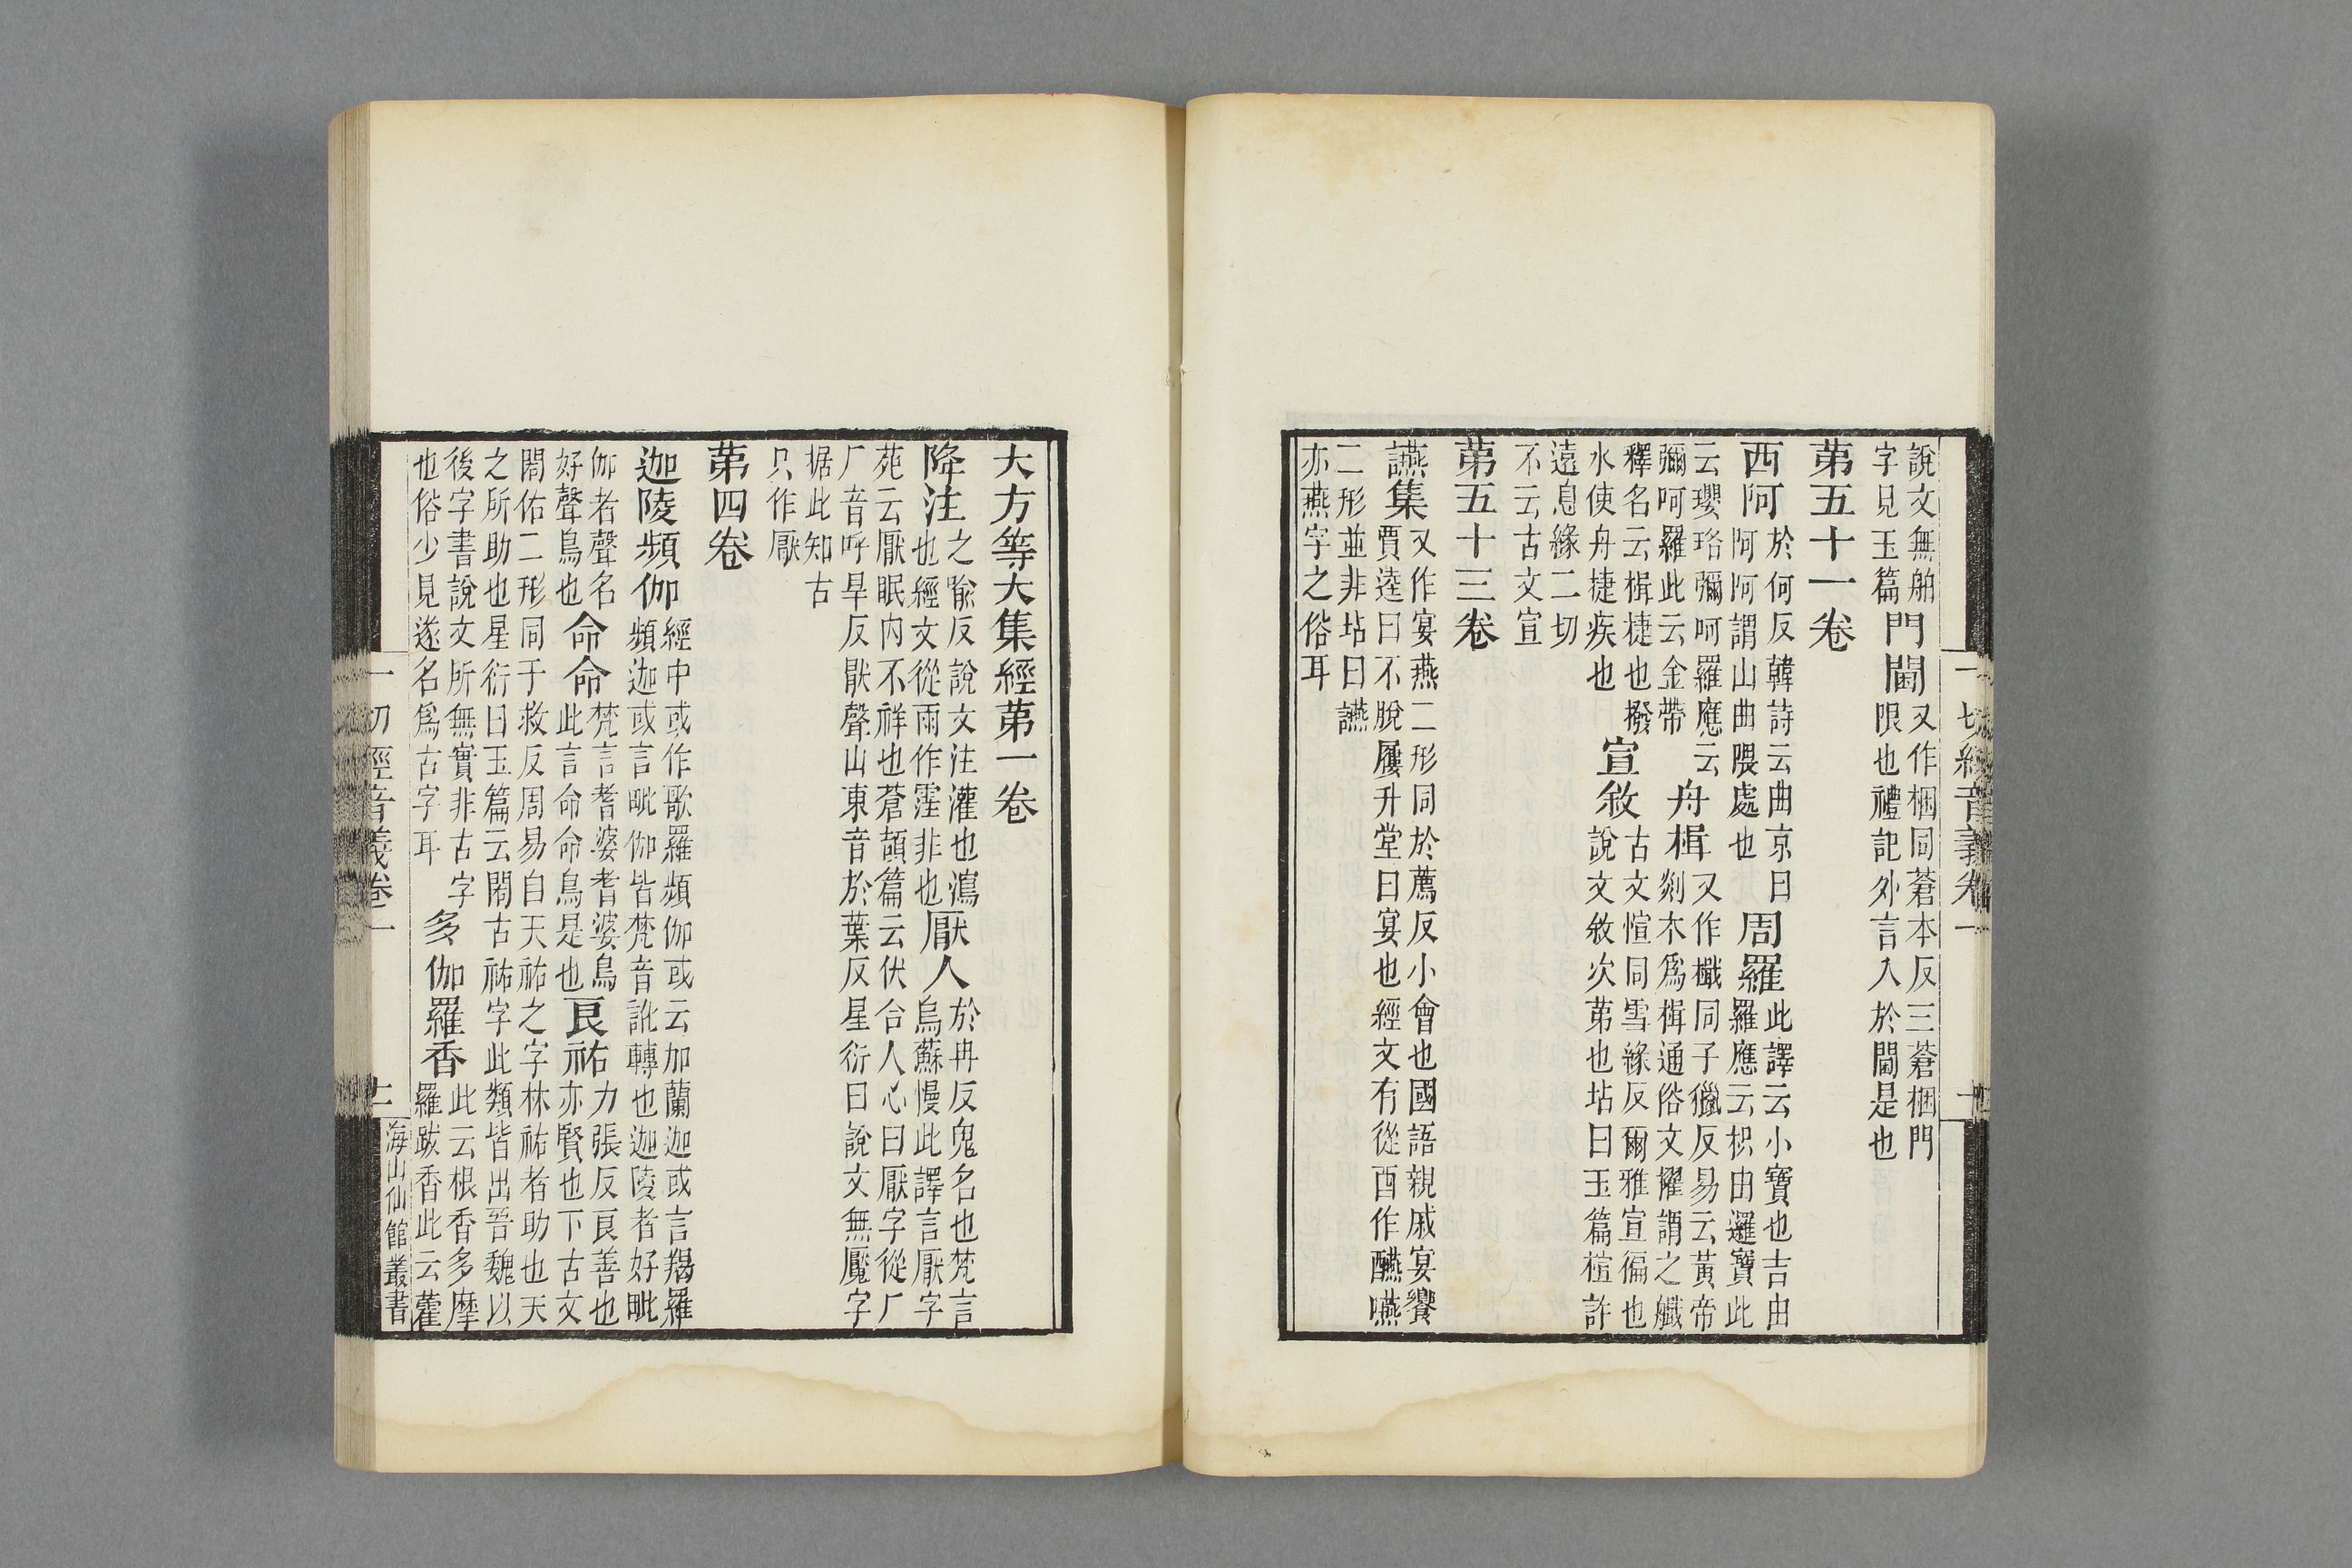 一切經音義卷一
說文無舳
字見玉篇
門閫
又作梱同蒼本反三蒼梱門
限也禮記外言入於閫是也
第五十一卷
西阿
於何反韓詩云曲京曰
阿阿謂山曲隈處也
周羅
此譯云小寶也吉由
羅應云枳由邏寶此
云瓔珞彌呵羅應云
彌呵羅此云金帶
舟楫
又作檝同子獵反易云黃帝
剡木爲楫通俗文擢謂之艥
釋名云楫捷也撥
水使舟捷疾也
宣敘
古文愃同雪緣反爾雅宣徧也
說文敘次第也坫曰玉篇楦許
遠息緣二切
不云古文宣
第五十三卷
讌集
又作宴燕二形同於薦反小會也國語親戚宴饗
賈逵曰不脫屨升堂曰宴也經文有從酉作醼嚥
二形並非坫曰讌
亦燕字之俗耳
大方等大集經第一卷
降注
之喻反說文注灌也瀉
也經文從雨作霔非也
厭人
於冉反鬼名也梵言
烏蘇慢此譯言厭字
苑云厭眠內不祥也蒼頡篇云伏合人心曰厭字從厂
厂音呼旱反猒聲山東音於葉反星衍曰說文無魘字
据此知古
只作厭
第四卷
迦陵頻伽
經中或作歌羅頻伽或云加蘭迦或言羯羅
頻迦或言毗伽皆梵音訛轉也迦陵者好毗
伽者聲名
好聲鳥也
命命
梵言耆婆耆婆鳥
此言命命鳥是也
良祐
力張反良善也
亦賢也下古文
佑二形同于救反周易自天祐之字林祐者助也天
之所助也星衍曰玉篇云古祐字此類皆出晉魏以
後字書說文所無實非古字
也俗少見遂名爲古字耳
多伽羅香
此云根香多摩
羅跋香此云藿
一切經音義卷一
十一
海山仙館叢書